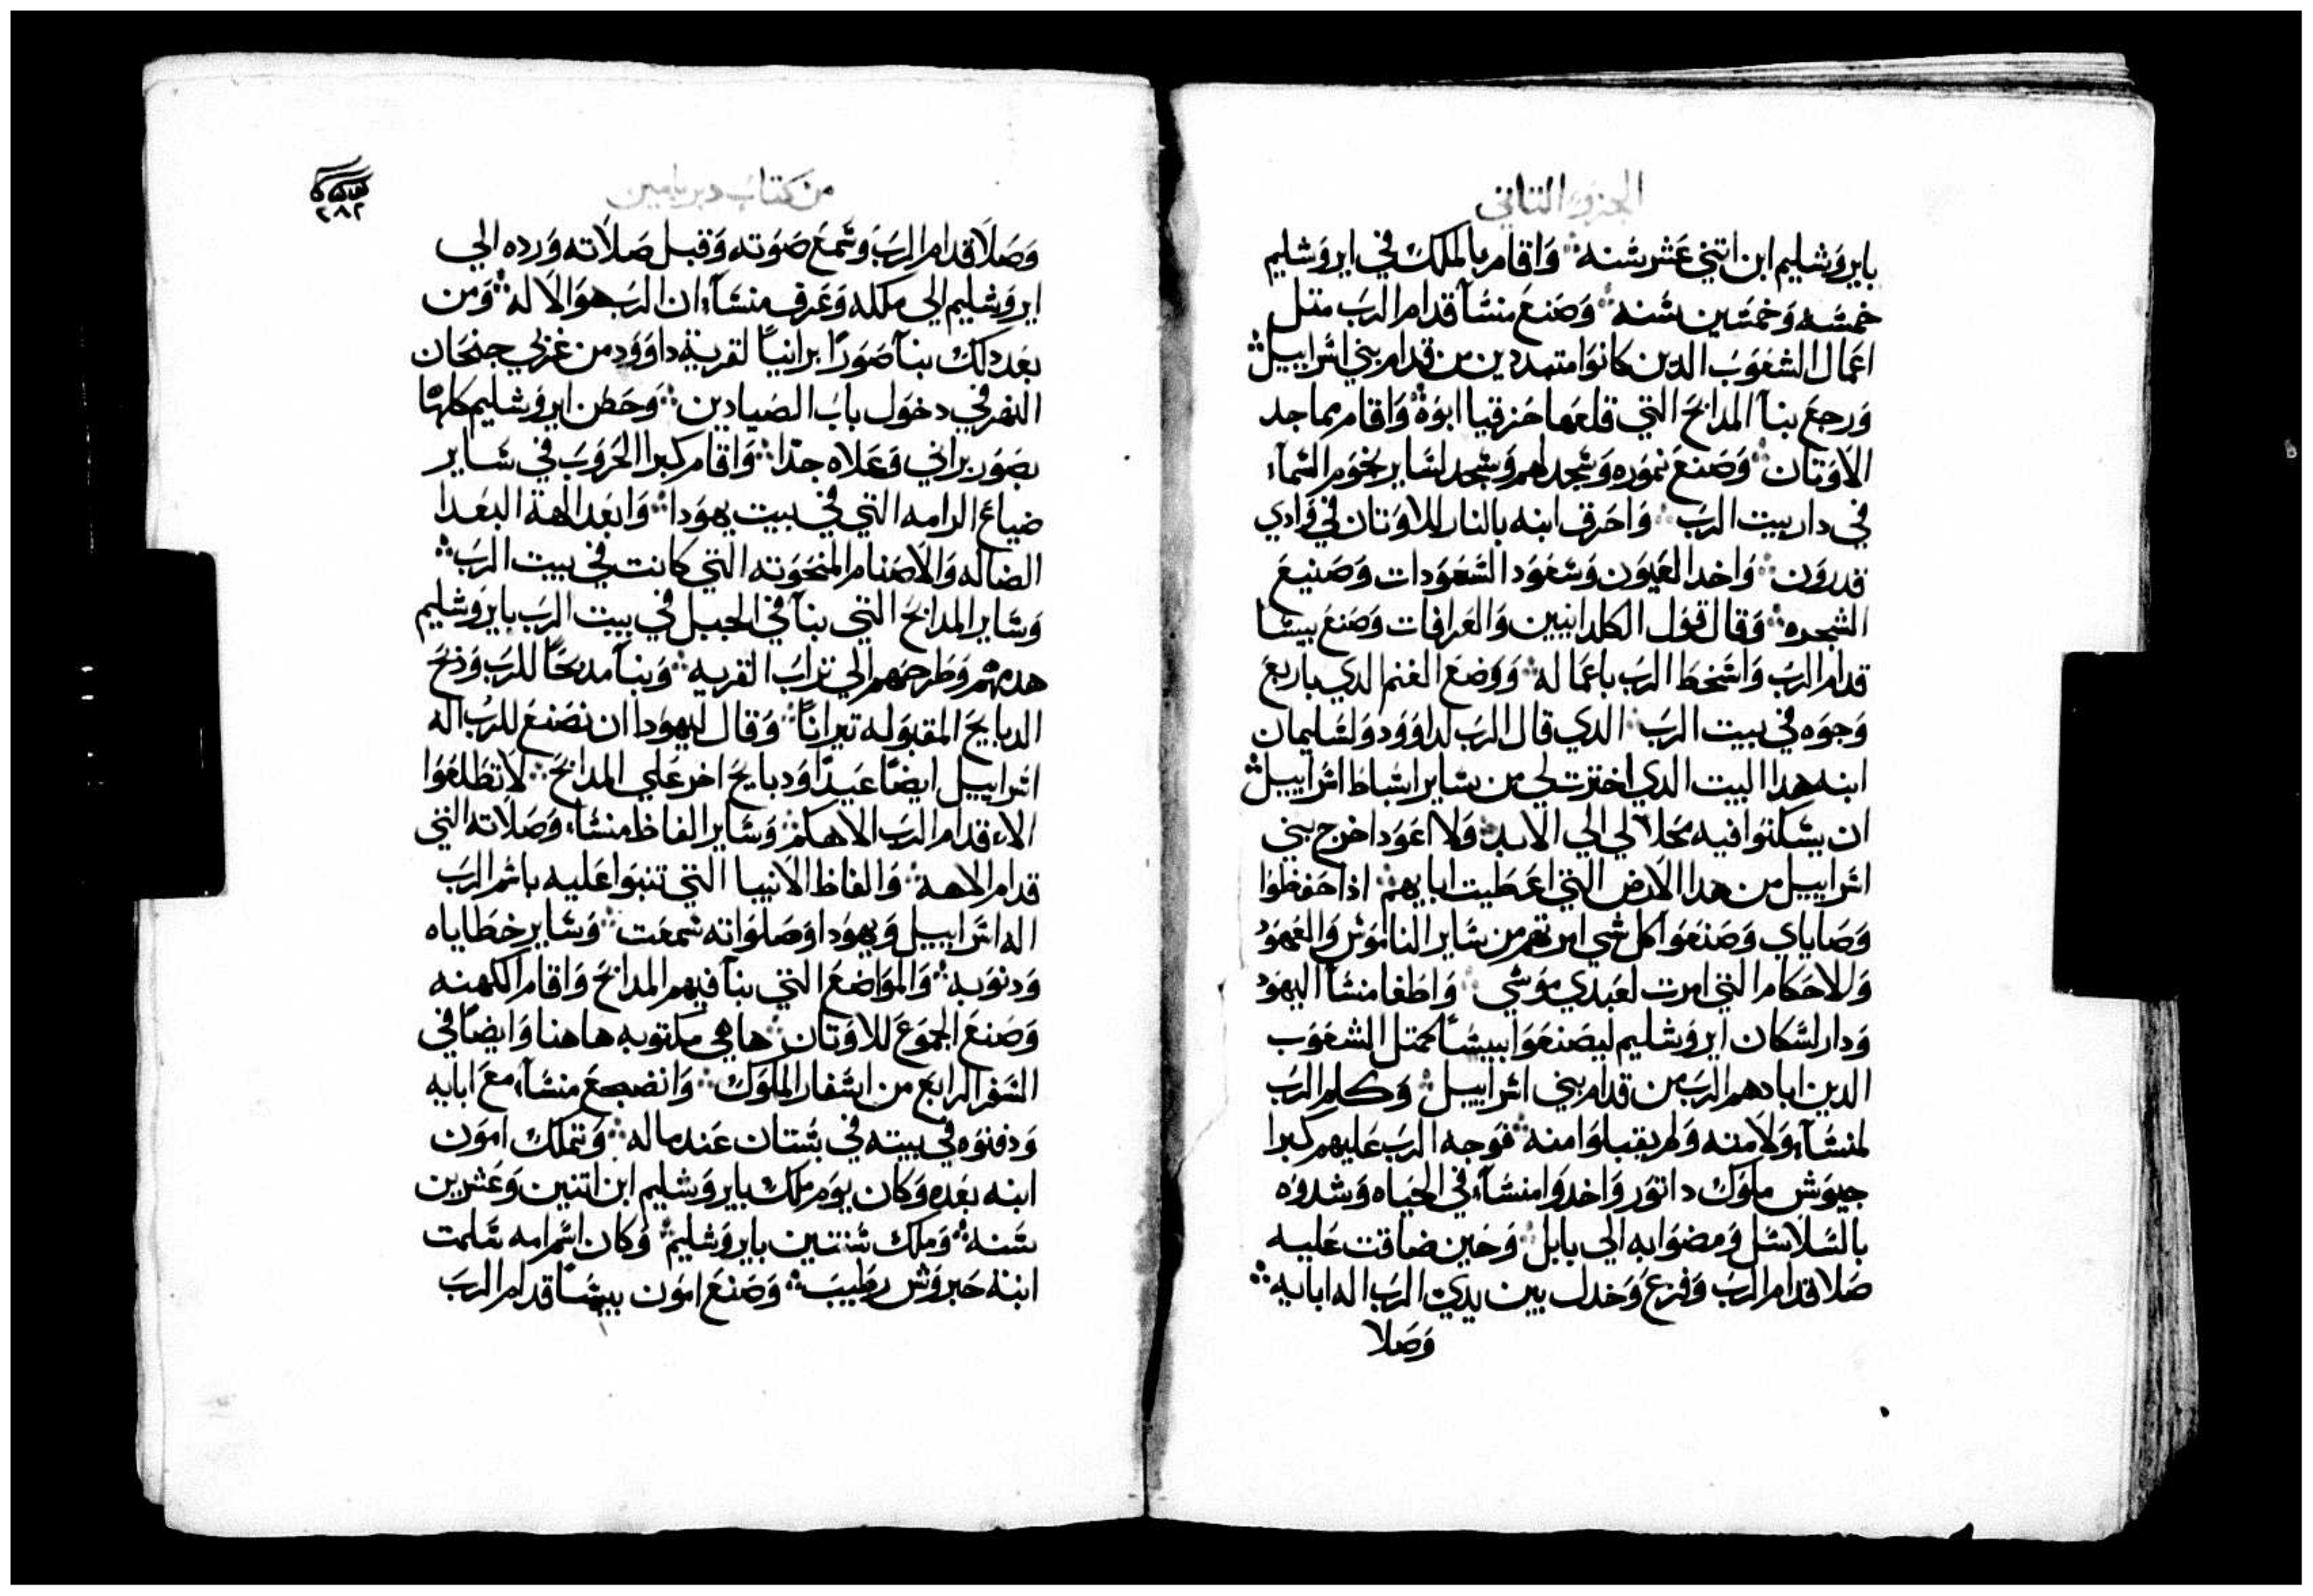 الجزو التاني
بايروشليم ابن اتني عشر سنه ⁘ واقام بالملك في ايروشليم
خمسه وخمسين سنه ⁘ وصنع منسا قدام الرب متل
اعمال الشعوب الدين كانوا متمددين من قدام بني اسراييل ⁘
ورجع بنا المدابح التي قلعها حزقيا ابوه ⁘ واقام مماجد
الاوتان ⁘ وصنع نموره وسجد لهم وسجد لساير نجوم السماء
في دار بيت الرب ⁘ واحرق ابنه بالنار للاوتان في وادي
قدرون ⁘ واخد العيون وشعود الشعودات وصنيع
الشجره ⁘ وقال قول الكلدانيين والعرافات وصنع بيسا
قدام الرب واسخط الرب باعماله ⁘ ووضع الغنم الدي باربع
وجوه في بيت الرب ⁘ الدي قال الرب لداوود ولسليمان
ابنه هدا البيت الدي اخترت لي من ساير اسباط اسراييل ⁘
ان يسكنوا فيه محلا لي الي الابد ⁘ ولا اعود اخرج بني
اسراييل من هدا الارض التي اعطيت ابايهم ⁘ ادا حفظوا
وصاياي وصنعوا كل شي امرتهم من ساير الناموس والعهود
وللاحكام التي امرت لعبدي موسي ⁘ واطغا منسا اليهود
ودار لسكان ايروشليم ليصنعوا بييسا كمتل الشعوب
الدين ابادهم الرب من قدام بني اسراييل ⁘ وكلم الرب
لمنساء ولامنه ولم يقبلوا منه ⁘ فوجه الرب عليهم كبرا
جيوش ملوك داتور واخدوا منساء في الحياه وشدوه
بالسلاسل ومضوا به الي بابل ⁘ وحين ضاقت عليه
صلا قدام الرب وفزع وخدل بين يدي الرب اله ابايه ⁘
وصلا
من كتاب دبرياميين
٢٨٢
وصلا قدام الرب وسمع صوته وقبل صلاته ورده الي
ايروشليم الي ملكه وعرف منساء ان الرب هو الاله ⁘ ومن
بعد دلك بنا صورا برانيا لقرية داوود من غربي جنحان
النهر في دخول باب الصيادين ⁘ وحطن ايروشليم كلها
بصور براني وعلاه جدا ⁘ واقام كبرا الحروب في ساير
ضياع الرامه التي في بيت يهودا ⁘ وابعد الهة البعدا
الضاله والاصنام المنحوته التي كانت في بيت الرب ⁘
وساير المدابح التي بنا في الجبل في بيت الرب بايروشليم
هدمهم وطرحهم الي تراب القريه ⁘ وبنا مدبحا للرب ودبح
الدبايح المقبوله تيرانا ⁘ وقال ليهودا ان نصنع للرب اله
اسراييل ايضا عيدا ودبايح اخر علي المدابح ⁘ لا تطلعوا
الاء قدام الرب الاهكم ⁘ وساير الفاظ منساء وصلاته التي
قدام الاهه ⁘ والفاظ الانبيا التي تنبوا عليه باسم الرب
اله اسراييل ويهودا وصلواته سمعت ⁘ وساير خطاياه
ودنوبه ⁘ والمواضع التي بنا فيهم المدابح واقام الكهنه
وصنع الجموع للاوتان ⁘ ها هي مكتوبه هاهنا وايضا في
السفر الرابع من اسفار الملوك ⁘ وانضجع منساء مع ابايه
ودفنوه في بيته في بستان عند ماله ⁘ وتملك امون
ابنه بعده وكان يوم ملك بايروشليم ابن اتنين وعشرين
سنه ⁘ وملك سنتين بايروشليم ⁘ وكان اسم امه سلمت
ابنة حبروش رطيب ⁘ وصنع امون بييسا قدام الرب